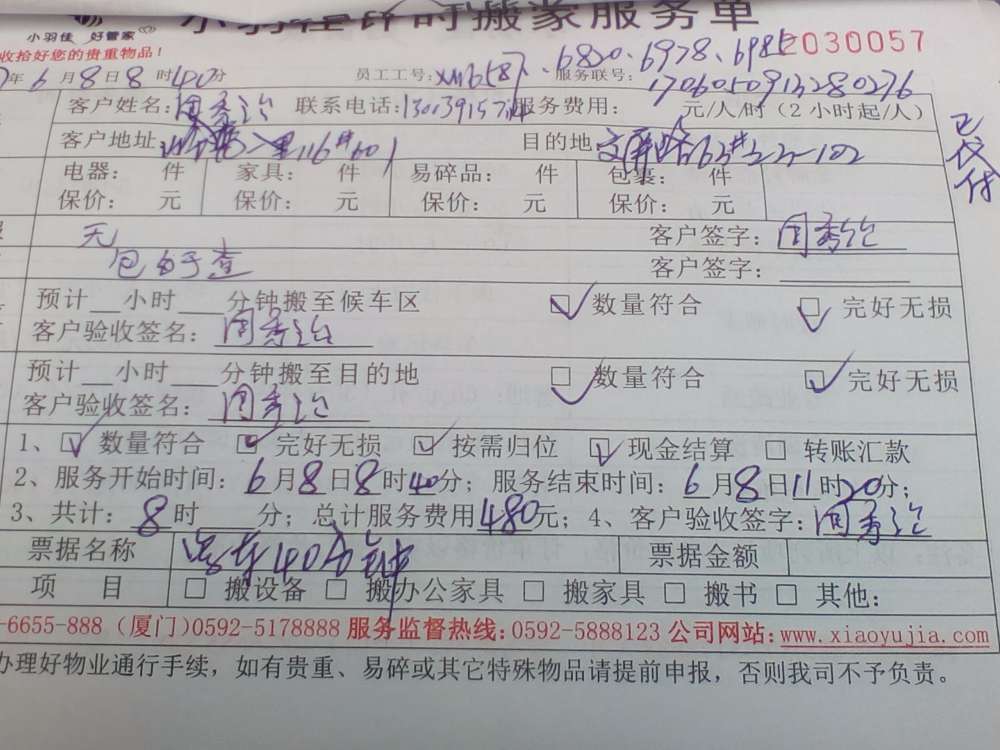 小羽佳计时搬家服务单
小羽佳 好管家
收拾好您的贵重物品！
2030057
年6月8日8时40分 员工工号：xm6587、6820、6978、698 服务联号：1706050913280276
客户姓名：周秀 联系电话：1303915 服务费用： 元/人/时（2小时起/人）
已代付
客户地址 里116#601 目的地：文屏路63#22-102
电器： 件 家具： 件 易碎品： 件 包裹： 件
保价： 元 保价： 元 保价： 元 保价： 元
无 客户签字：周秀
客户签字：
预计__小时___分钟搬至候车区 数量符合 完好无损
客户验收签名：周秀
预计__小时___分钟搬至目的地 数量符合 完好无损
客户验收签名：周秀
1、 数量符合 完好无损 按需归位 现金结算 转账汇款
2、服务开始时间：6月8日8时40分；服务结束时间：6月8日11时20分；
3、共计：8时___分；总计服务费用480元；4、客户验收签字：周秀
票据名称 40分钟 票据金额
项 目 搬设备 搬办公家具 搬家具 搬书 其他：
-6655-888（厦门）0592-5178888 服务监督热线：0592-5888123 公司网站：www.xiaoyujia.com
办理好物业通行手续，如有贵重、易碎或其它特殊物品请提前申报，否则我司不予负责。